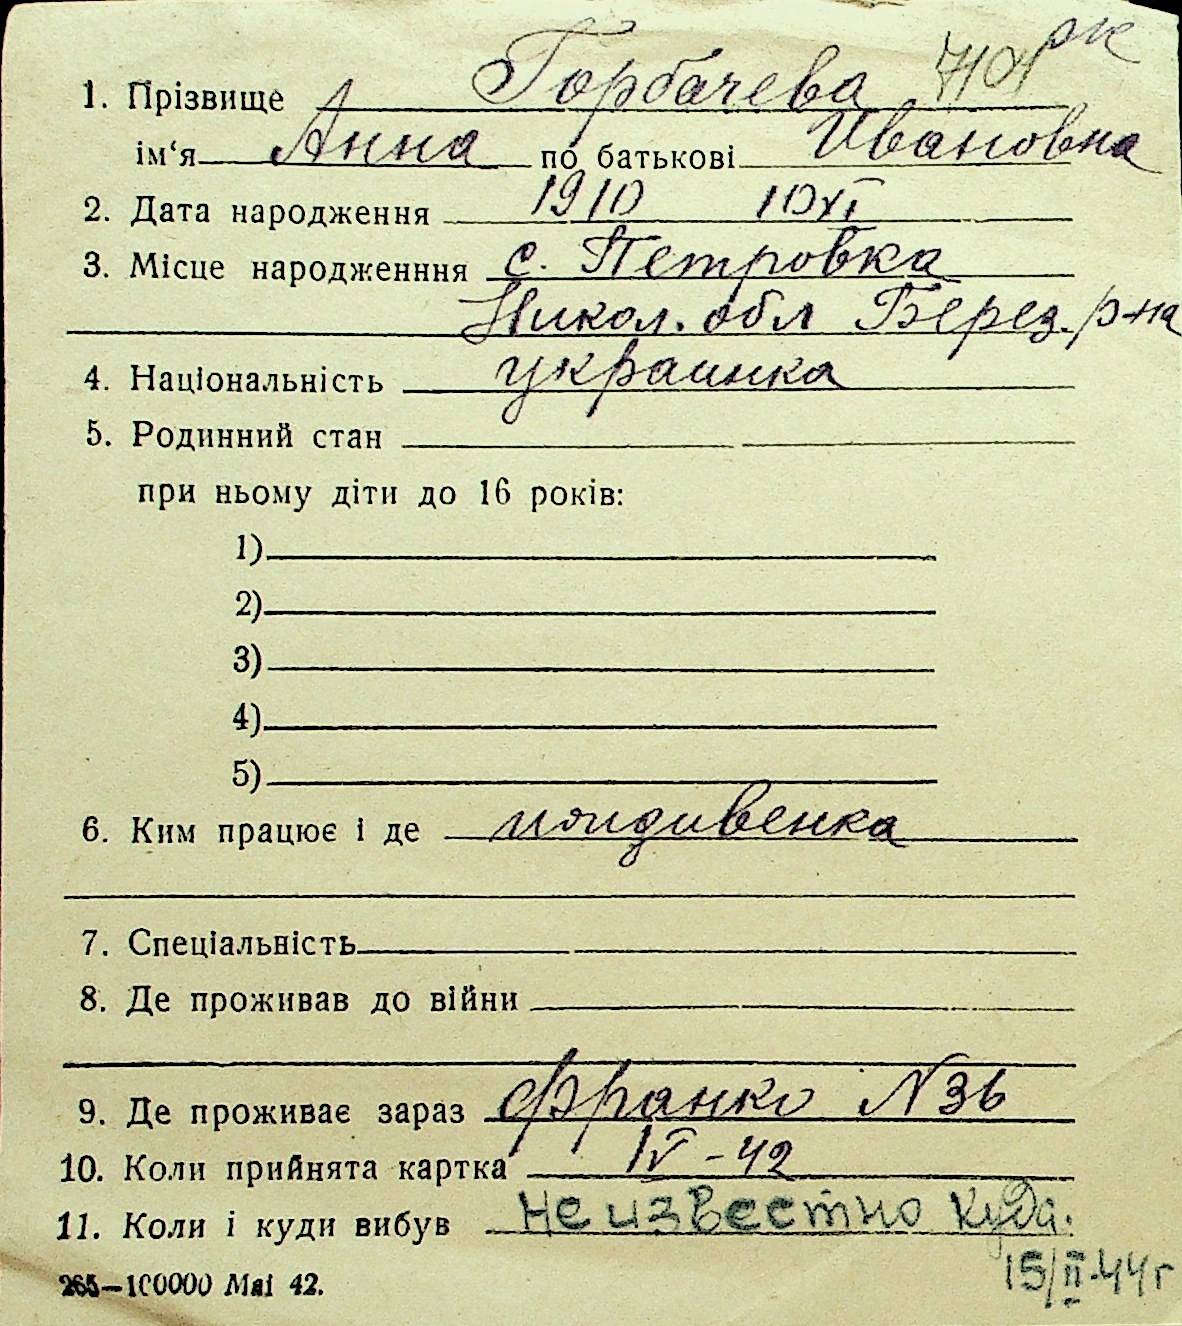 1. Прізвище Горбачева
ім‘я Анна по батькові Ивановна
2. Дата народження 1910 10 XI
3. Місце народженння с. Петровка
Никол. обл Берез. р-на
4. Національність украинка
5. Родинний стан
при ньому діти до 16 років:
1)
2)
3)
4)
5)
6. Ким працює і де иждивенка
7. Спеціальність
8. Де проживав до війни
9. Де проживає зараз Франко N 36
10. Коли прийнята картка IV - 42
11. Коли і куди вибув не известно куда.
15/II-44 г
265—100000 Mai 42.